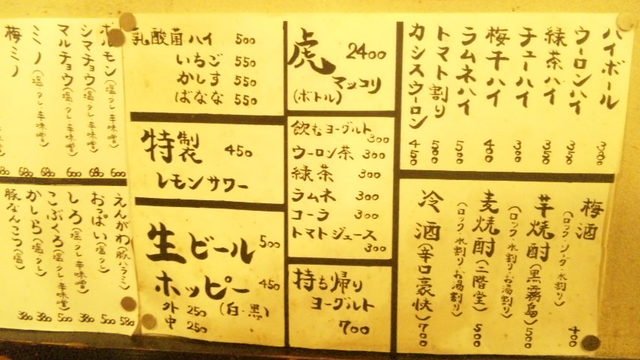 ハイボール 350
ウーロンハイ 350
緑茶ハイ 350
チューハイ 300
梅干ハイ 400
ラムネハイ 500
トマト割り 500
カシスウーロン 450
梅酒 (ロック ソーダ 水割り) 400
芋焼酎 (黒霧島) 500
(ロック 水割り お湯割り)
麦焼酎 (二階堂) 500
(ロック 水割り お湯割り)
冷酒 (辛口豪快) 700
虎 2400
マッコリ
(ボトル)
飲むヨーグルト
300
ウーロン茶 300
緑茶 300
ラムネ 300
コーラ 300
トマトジュース
300
持ち帰り
ヨーグルト
700
乳酸菌ハイ 500
いちご 550
かしす 550
ばなな 550
特製 450
レモンサワー
生ビール 500
ホッピー 450
外 250 (白・黒)
中 250
ホルモン (塩 タレ 辛味噌)
シマチョウ (塩 タレ 辛味噌) 680
マルチョウ (塩 タレ 辛味噌) 680
ミノ (塩 タレ 辛味噌)
梅ミノ
えんがわ (豚ハラミ) 580
おっぱい (塩 タレ) 500
しろ (塩 タレ 辛味噌)
こぶくろ (塩 タレ 辛味噌) 500
かしら (塩 タレ) 380
豚なんこつ (塩) 380